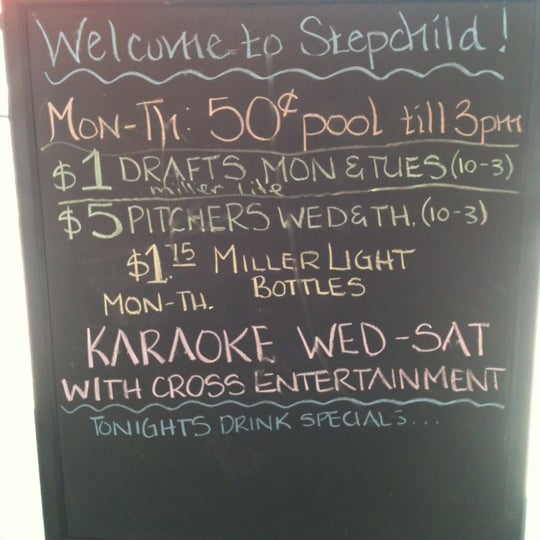 Welcome to Stepchild!
MON-TH: 50¢ pool till 3pm
$1 DRAFTS MON & TUES (10-3)
miller lite
$5 PITCHERS WED & TH. (10-3)
$1.15 MILLER LIGHT
MON-TH. BOTTLES
KARAOKE WED-SAT
WITH CROSS ENTERTAINMENT
TONIGHTS DRINK SPECIALS...